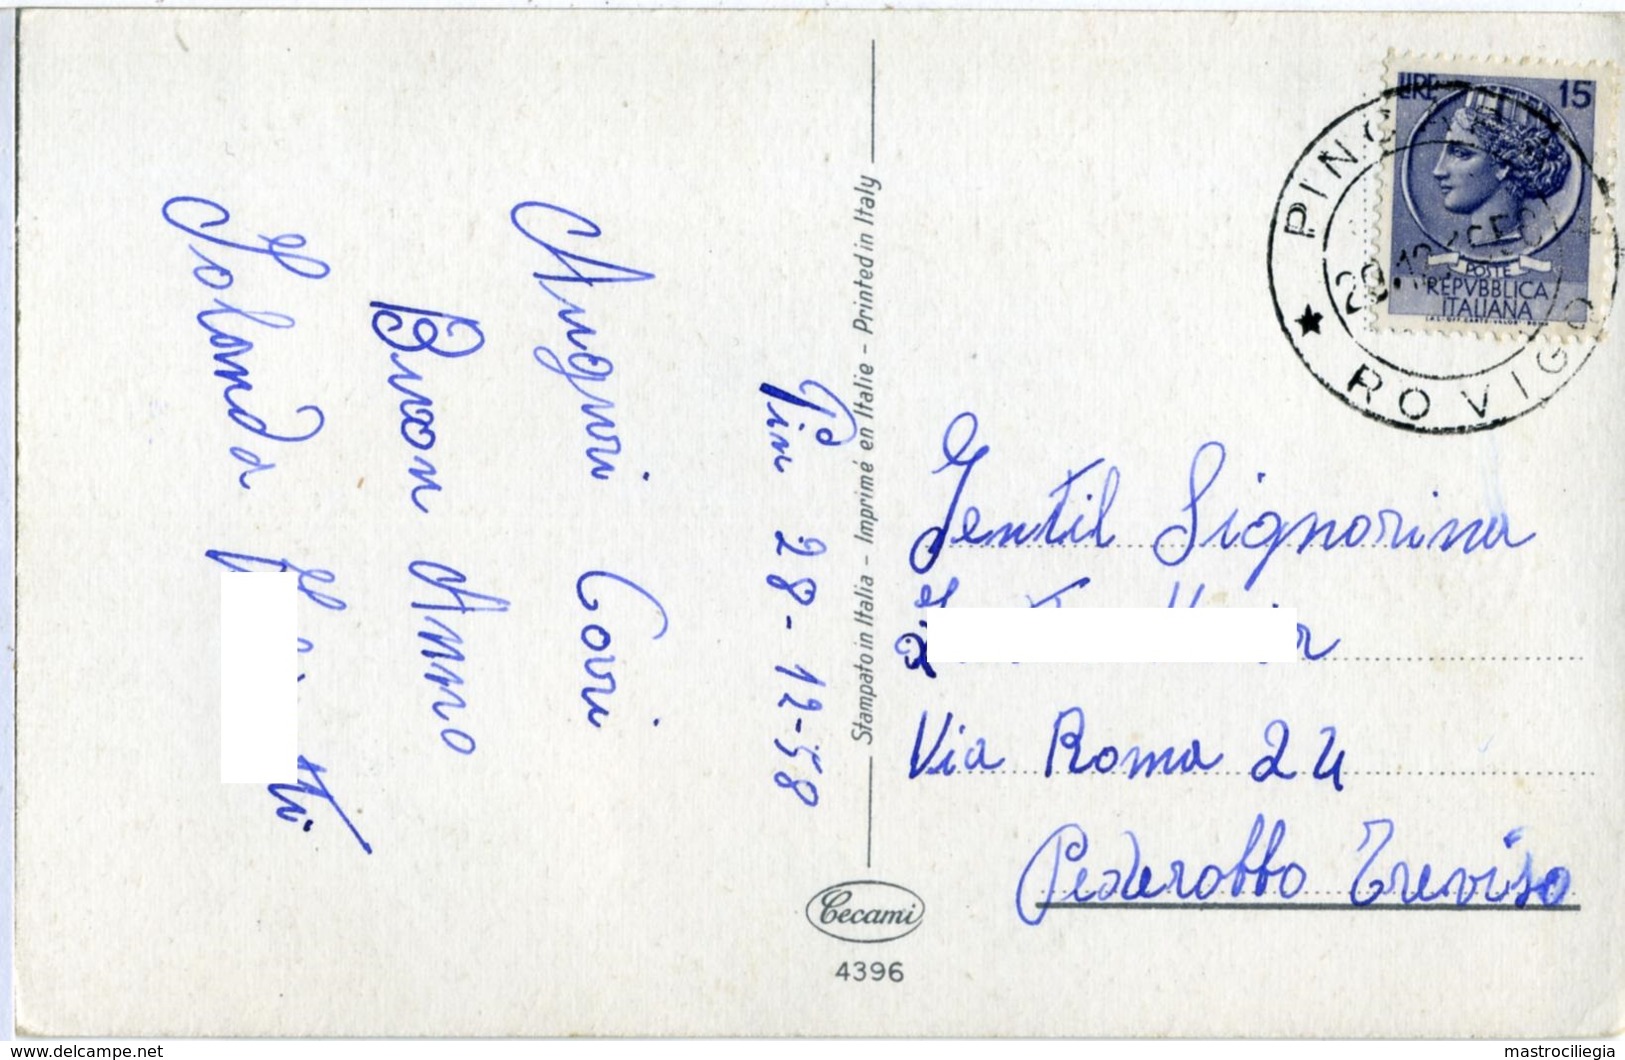 Pin 28-12-58
Auguri Cari
Buon Anno
Iolanda
Stampato in Italia - Imprimé en Italie - Printed in Italy
Cecami
4396
LIRE 15
POSTE
REPVBBLICA
ITALIANA
ROVIGO
Gentil Signorina
Via Roma 24
Pederobbo Treviso
www.delcampe.net
mastrociliegia